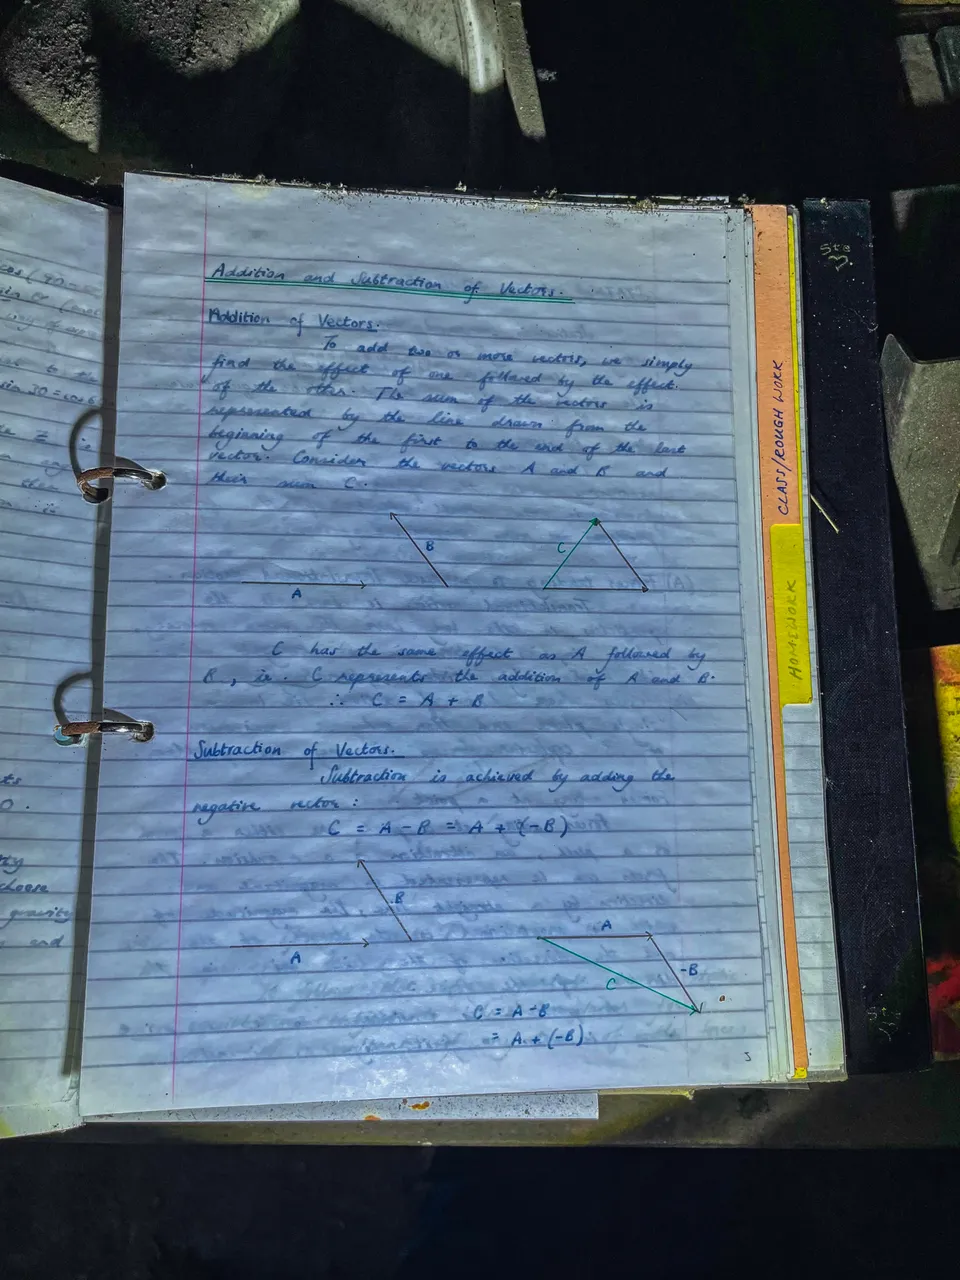 Addition and Subtraction of Vectors.
Addition of Vectors.
To add two or more vectors, we simply
find the effect of one followed by the effect
of the other. The sum of the vectors is
represented by the line drawn from the
beginning of the first to the end of the last
vector. Consider the vectors A and B and
their sum C.
B
A
C
C has the same effect as A followed by
B, ie. C represents the addition of A and B.
∴ C = A + B
Subtraction of Vectors.
Subtraction is achieved by adding the
negative vector:
C = A - B = A + (-B)
B
A
A
-B
C
C = A - B
= A + (-B)
CLASS/ROUGH WORK
HOMEWORK
cos(90
sin 30 = cos 6
ts
0.
choose
gravity
and